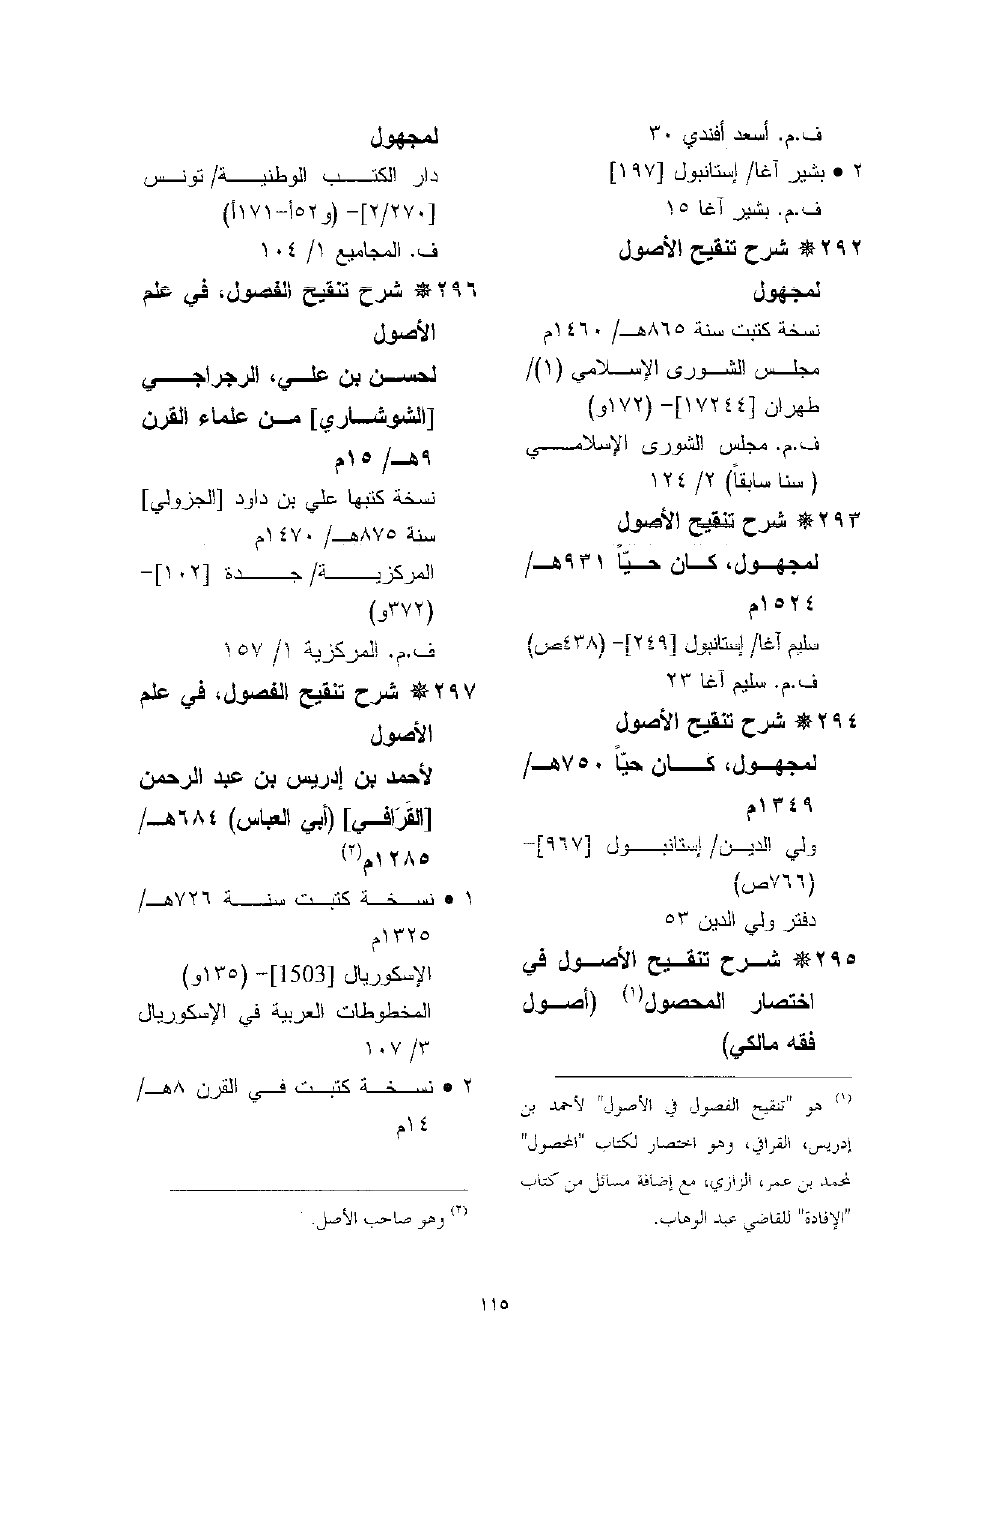 ف.م. أسعد أفندي ٣٠
٢ • بشير آغا/ إستانبول [١٩٧]
ف.م. بشير آغا ١٥
٢٩٢* شرح تنقيح الأصول
لمجهول
نسخة كتبت سنة ٨٦٥هـ/ ١٤٦٠م
مجلس الشورى الإسلامي (١)/
طهران [١٧٢٤٤]- (١٧٢و)
ف.م. مجلس الشورى الإسلامي
( سنا سابقاً) ٢/ ١٢٤
٢٩٣* شرح تنقيح الأصول
لمجهول، كان حيّاً ٩٣١هـ/
١٥٢٤م
سليم آغا/ إستانبول [٢٤٩]- (٤٣٨ص)
ف.م. سليم آغا ٢٣
٢٩٤* شرح تنقيح الأصول
لمجهول، كان حيّاً ٧٥٠هـ/
١٣٤٩م
ولي الدين/ إستانبول [٩٦٧]-
(٧٦٦ص)
دفتر ولي الدين ٥٣
٢٩٥* شرح تنقيح الأصول في
اختصار المحصول(١) (أصول
فقه مالكي)
(١) هو "تنقيح الفصول في الأصول" لأحمد بن
إدريس، القرافي، وهو اختصار لكتاب "المحصول"
لمحمد بن عمر، الرازي، مع إضافة مسائل من كتاب
"الإفادة" للقاضي عبد الوهاب.
لمجهول
دار الكتب الوطنية/ تونس
[٢/٢٧٠]- (و٥٢أ-١٧١أ)
ف. المجاميع ١/ ١٠٤
٢٩٦* شرح تنقيح الفصول، في علم
الأصول
لحسن بن علي، الرجراجي
[الشوشاري] من علماء القرن
٩هـ/ ١٥م
نسخة كتبها علي بن داود [الجزولي]
سنة ٨٧٥هـ/ ١٤٧٠م
المركزية/ جدة [١٠٢]-
(٣٧٢و)
ف.م. المركزية ١/ ١٥٧
٢٩٧* شرح تنقيح الفصول، في علم
الأصول
لأحمد بن إدريس بن عبد الرحمن
[القَرَافي] (أبي العباس) ٦٨٤هـ/
١٢٨٥م(٢)
١ • نسخة كتبت سنة ٧٢٦هـ/
١٣٢٥م
الإسكوريال [1503]- (١٣٥و)
المخطوطات العربية في الإسكوريال
٣/ ١٠٧
٢ • نسخة كتبت في القرن ٨هـ/
١٤م
(٢) وهو صاحب الأصل.
١١٥